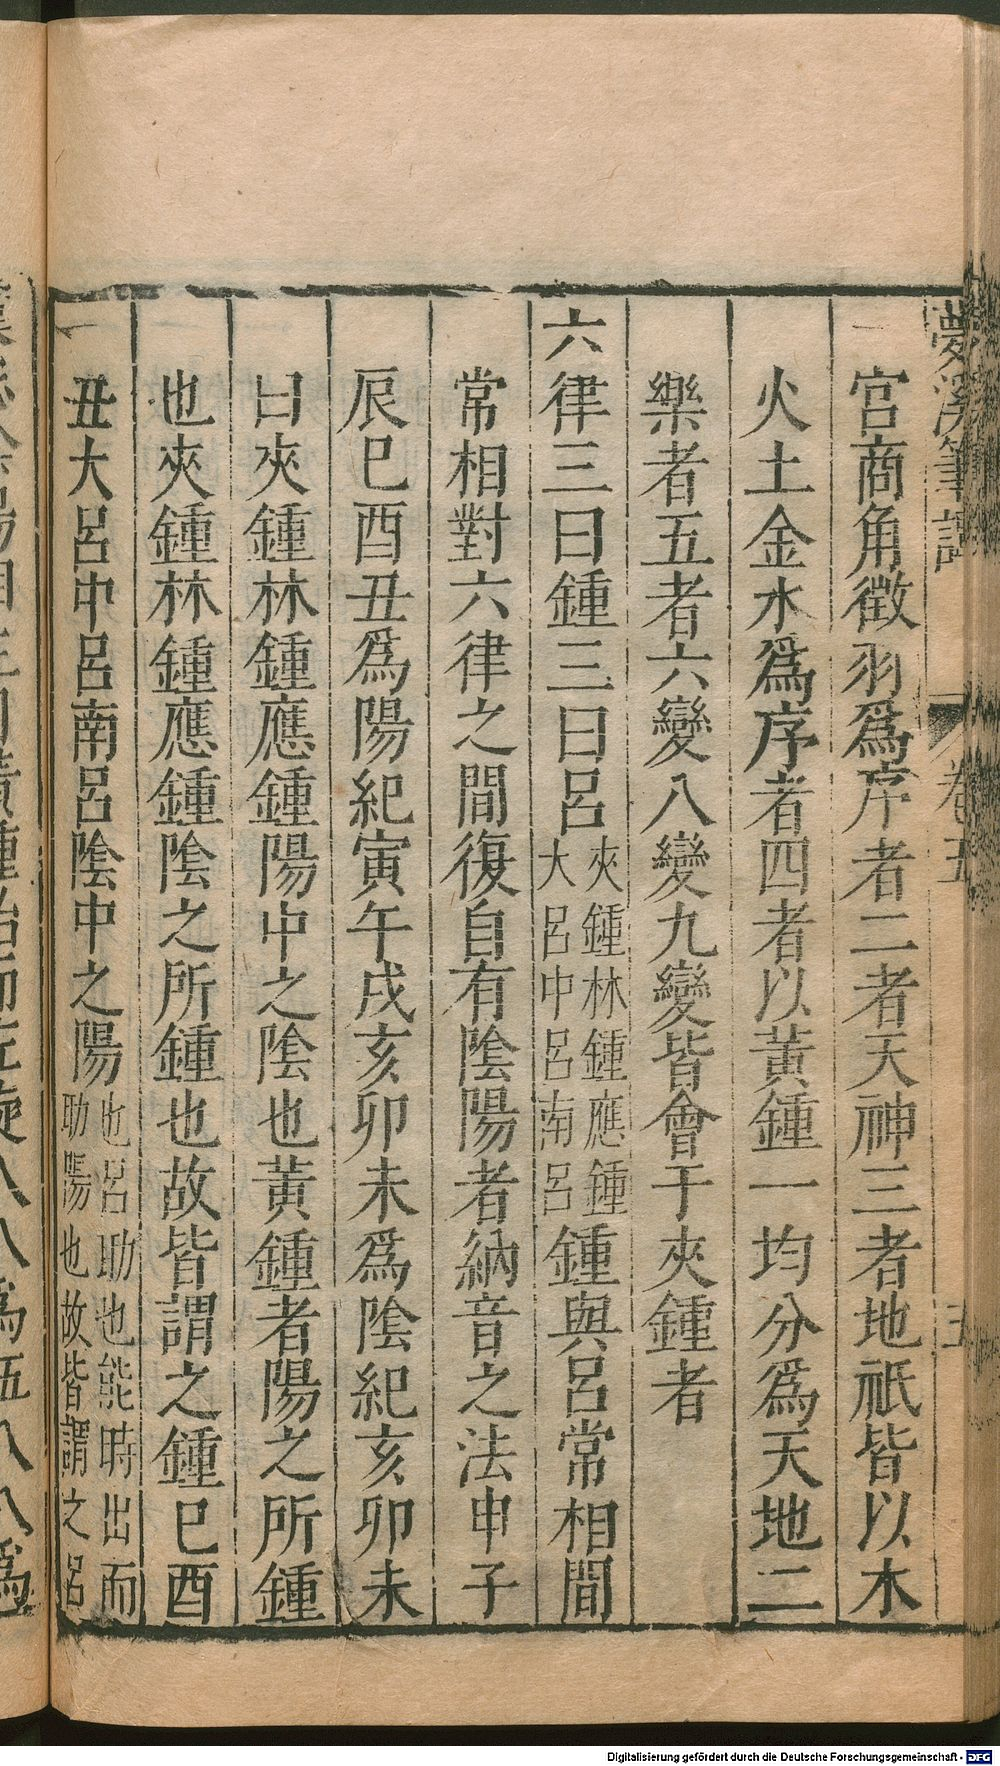 夢溪筆談 卷五 五
宮商角徵羽爲序者二者天神三者地祇皆以木
火土金水爲序者四者以黃鍾一均分爲天地二
樂者五者六變八變九變皆會于夾鍾者
六律三曰鍾三曰呂夾鍾林鍾應鍾大呂中呂南呂鍾與呂常相間
常相對六律之間復自有陰陽者納音之法申子
辰巳酉丑爲陽紀寅午戌亥卯未爲陰紀亥卯未
曰夾鍾林鍾應鍾陽中之陰也黃鍾者陽之所鍾
也夾鍾林鍾應鍾陰之所鍾也故皆謂之鍾巳酉
丑大呂中呂南呂陰中之陽也呂助也能時出而助陽也故皆謂之呂
Digitalisierung gefördert durch die Deutsche Forschungsgemeinschaft - DFG